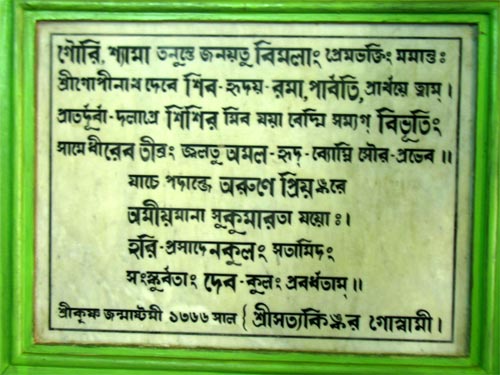 গৌরি, শ্যামা তনূস্তে জনয়তু বিমলাং প্রেমভক্তিং মমান্তঃ
শ্রীগোপীনাথ দেবে শিব-হৃদয়-রমা, পার্বতি, প্রার্থয়ে ত্বাম্।
প্রাতর্দূর্বা-দলাগ্রে শিশির মিব ময়া বেদ্মি সমাণ্ বিভূতিং
সামে ধীরেব তীব্রং জ্বলতু অমল-হৃদ-ব্যোম্নি সৌর-প্রভেব॥
যাচে পদাব্জে অরুণে প্রিয়ঙ্করে
অমীয়মানা সুকুমারতা যয়োঃ।
হরি-প্রসাদেনকুলং সতামিদং
সংস্কুর্বতাং দেব-কুলং প্রবর্ধতাম্॥
শ্রীকৃষ্ণ জন্মাষ্টমী ১৩৬৬ সাল { শ্রীসত্যকিঙ্কর গোস্বামী।